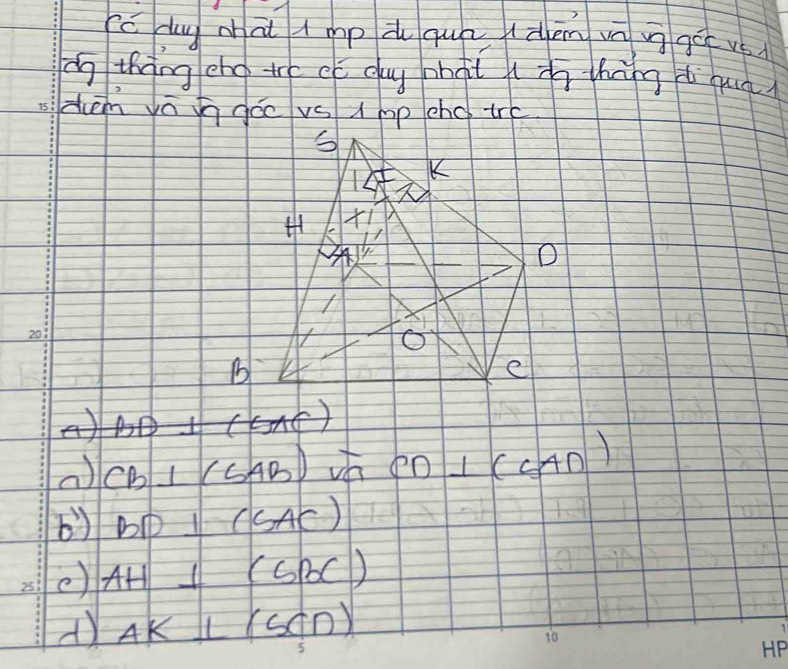 Có duy nhất 1 mp đi qua 1 điểm và vg góc vs 1
đg thẳng cho trc có duy nhất 1 đg thẳng đi qua 1
15 điểm và vg góc vs 1 mp cho trc
S
I K
H
A D
20
O
B C
a) BD ⊥ (SAC)
a) CB ⊥ (SAB) và CD ⊥ (SAD)
b) BD ⊥ (SAC)
25 c) AH ⊥ (SBC)
d) AK ⊥ (SCD)
5 10
HP